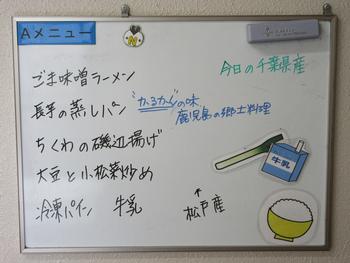 Aメニュー
今日の千葉県産
ごま味噌ラーメン
長芋の蒸しパン
"かるかん"の味
鹿児島の郷土料理
ちくわの磯辺揚げ
大豆と小松菜炒め
牛乳
冷凍パイン 牛乳
↑
松戸産